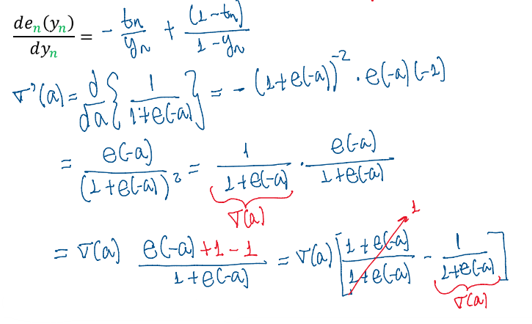 de_n(y_n)/dy_n = - t_n/y_n + (1-t_n)/(1-y_n)
σ'(a) = d/da { 1/(1+e(-a)) } = - (1+e(-a))^-2 · e(-a)(-1)
= e(-a)/(1+e(-a))^2 = 1/(1+e(-a)) · e(-a)/(1+e(-a))
σ(a)
= σ(a) (e(-a)+1-1)/(1+e(-a)) = σ(a) [ (1+e(-a))/(1+e(-a)) - 1/(1+e(-a)) ]
1
σ(a)